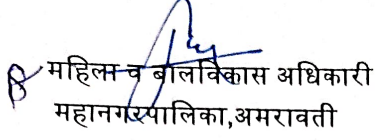 महिला व बालविकास अधिकारी
महानगरपालिका,अमरावती